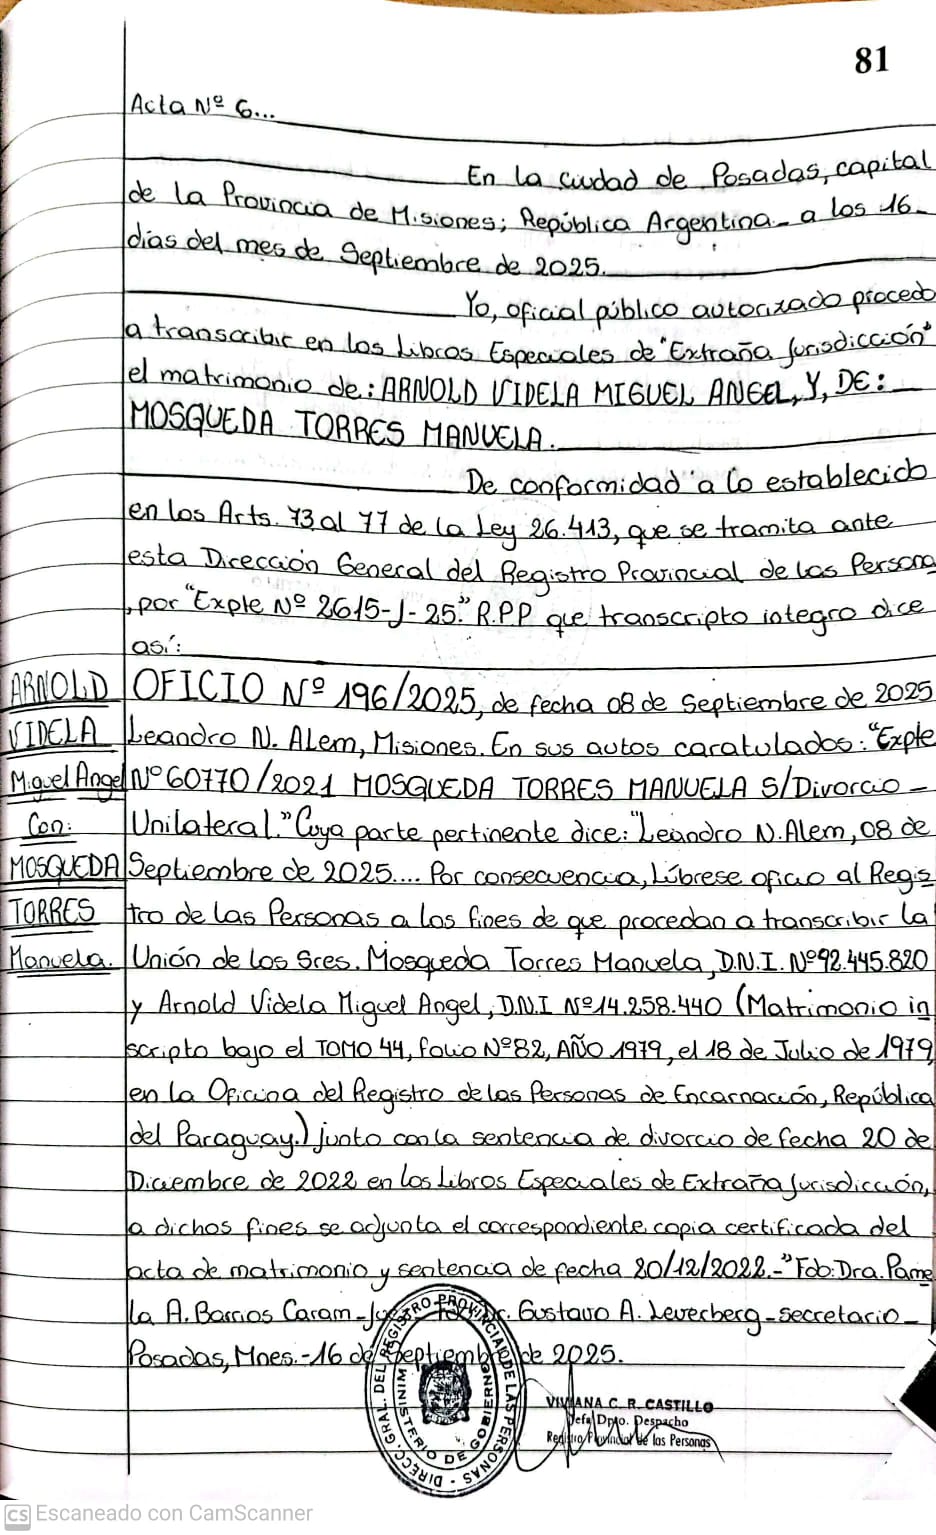 81
Acta Nº 6...
En la ciudad de Posadas, capital
de la Provincia de Misiones; República Argentina - a los 16 -
días del mes de Septiembre de 2025.
Yo, oficial público autorizado procedo
a transcribir en los Libros Especiales de "Extraña Jurisdicción"
el matrimonio de: ARNOLD VIDELA MIGUEL ANGEL, Y, DE:
MOSQUEDA TORRES MANUELA.
De conformidad a lo establecido
en los Arts. 73 al 77 de la Ley 26.413, que se tramita ante
esta Dirección General del Registro Provincial de las Persona
, por "Expte Nº 2615-J-25." R.P.P que transcripto integro dice
así:
ARNOLD
VIDELA
Miguel Angel
Con:
MOSQUEDA
TORRES
Manuela.
OFICIO Nº 196/2025, de fecha 08 de Septiembre de 2025
Leandro N. Alem, Misiones. En sus autos caratulados: "Expte
Nº 60770/2021 MOSQUEDA TORRES MANUELA S/Divorcio -
Unilateral." Cuya parte pertinente dice: "Leandro N. Alem, 08 de
Septiembre de 2025.... Por consecuencia, Líbrese oficio al Regis
tro de las Personas a los fines de que procedan a transcribir la
Unión de los Sres. Mosqueda Torres Manuela, D.N.I. Nº 92.445.820
y Arnold Videla Miguel Angel, D.N.I Nº 14.258.440 (Matrimonio in
scripto bajo el TOMO 44, folio Nº 82, AÑO 1979, el 18 de Julio de 1979,
en la Oficina del Registro de las Personas de Encarnación, República
del Paraguay.) junto con la sentencia de divorcio de fecha 20 de
Diciembre de 2022 en los Libros Especiales de Extraña Jurisdicción,
a dichos fines se adjunta el correspondiente copia certificada del
acta de matrimonio y sentencia de fecha 20/12/2022.-" Fdo: Dra. Pame
la A. Barrios Caram - Gustavo A. Leverberg - secretario -
Posadas, Mnes. - 16 de Septiembre de 2025.
DIRECC. GRAL. DEL REGISTRO PROVINCIAL DE LAS PERSONAS
MINISTERIO DE GOBIERNO
VIVIANA C. R. CASTILLO
Jefa Dpto. Despacho
Registro Provincial de las Personas
CS Escaneado con CamScanner